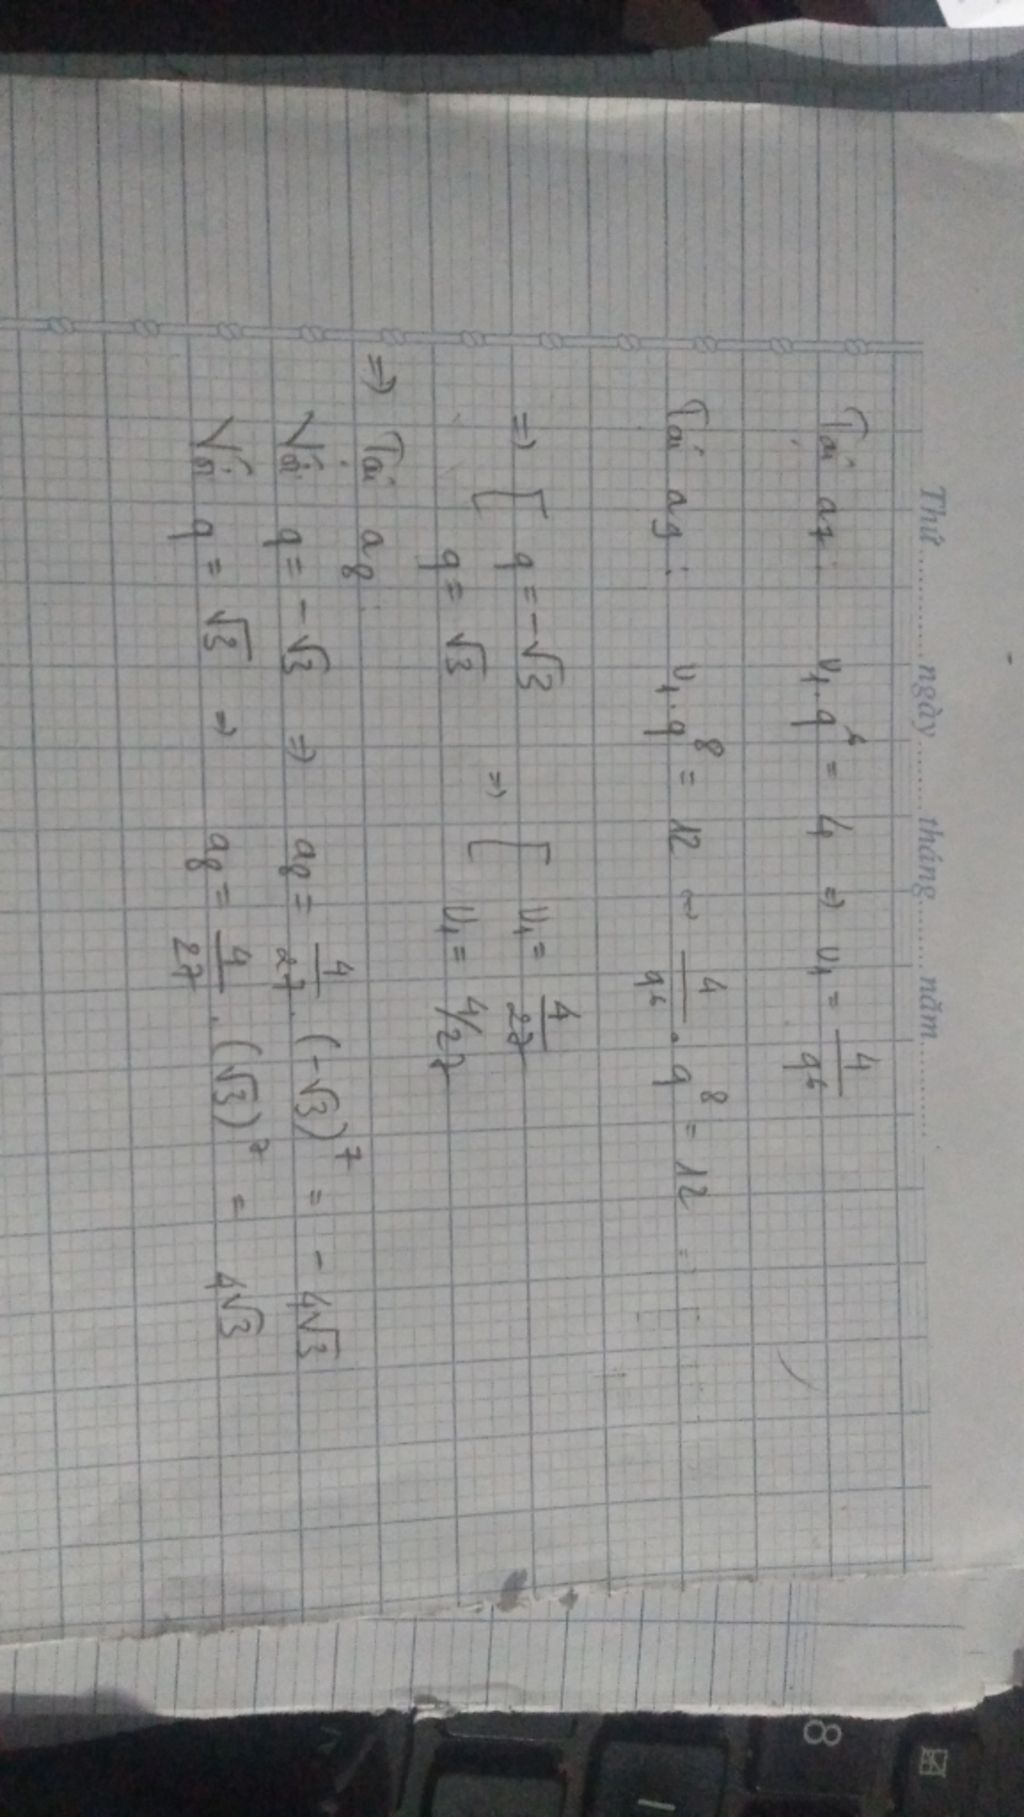 Thứ.......... ngày....... tháng....... năm..........
Tại a7: U1.q^6 = 4 => U1 = 4/q^6
Tại a9: U1.q^8 = 12 => 4/q^6 . q^8 = 12
=> [ q = -√3 => [ U1 = 4/27
q = √3 U1 = 4/27
=> Tại a8:
Với q = -√3 => a8 = 4/27 . (-√3)^7 = -4√3
Với q = √3 => a8 = 4/27 . (√3)^7 = 4√3
8